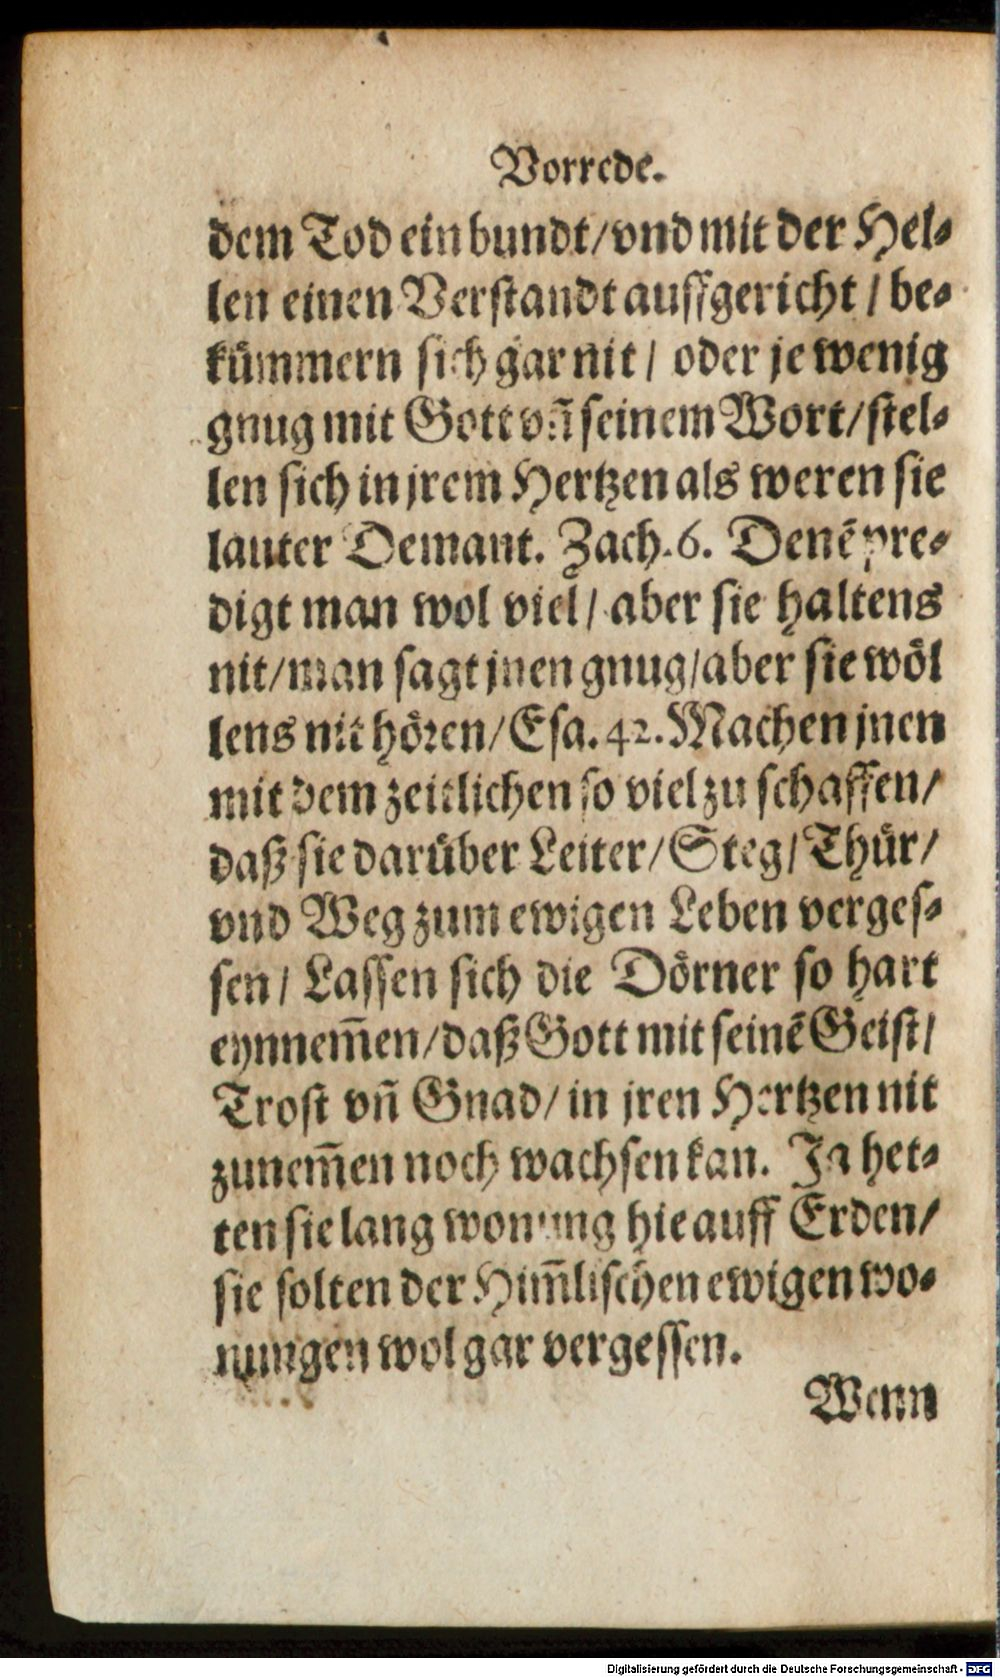 Vorrede.
dem Tod ein bundt/ vnd mit der Hel-
len einen Verstandt auffgericht / be-
kümmern sich gar nit / oder je wenig
gnug mit Gott vñ seinem Wort/ stel-
len sich in jrem Hertzen als weren sie
lauter Demant. Zach. 6. Denẽ pre-
digt man wol viel / aber sie haltens
nit/ man sagt jnen gnug/ aber sie wöl
lens nit hören/ Esa. 42. Machen jnen
mit dem zeitlichen so viel zu schaffen/
daß sie darüber Leiter/ Steg/ Thür/
vnd Weg zum ewigen Leben verges-
sen / Lassen sich die Dörner so hart
eynnem̃en/ daß Gott mit seinẽ Geist/
Trost vñ Gnad/ in jren Hertzen nit
zunem̃en noch wachsen kan. Ja het-
ten sie lang wonung hie auff Erden/
sie solten der Him̃lischen ewigen wo-
nungen wol gar vergessen.
Wenn
Digitalisierung gefördert durch die Deutsche Forschungsgemeinschaft - DFG